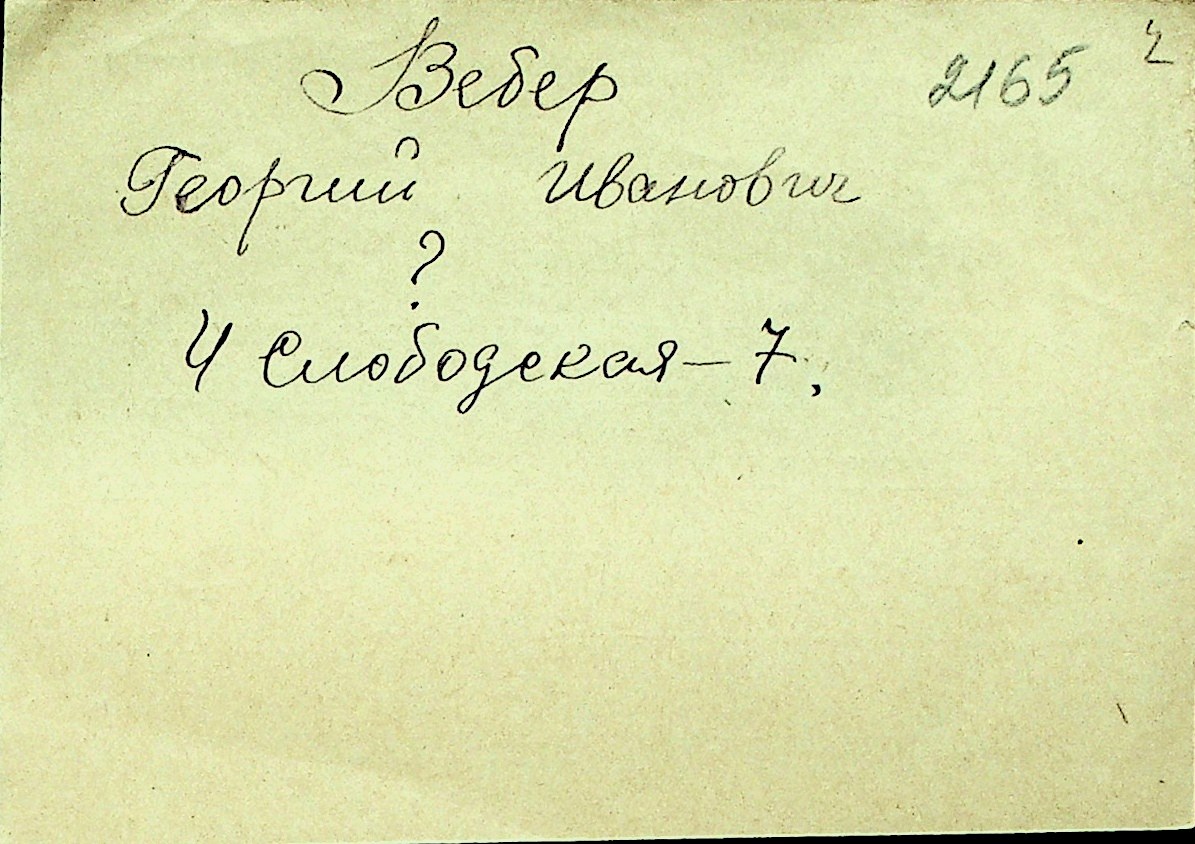 Вебер 2165
Георгий Иванович
?
4 Слободская – 7,